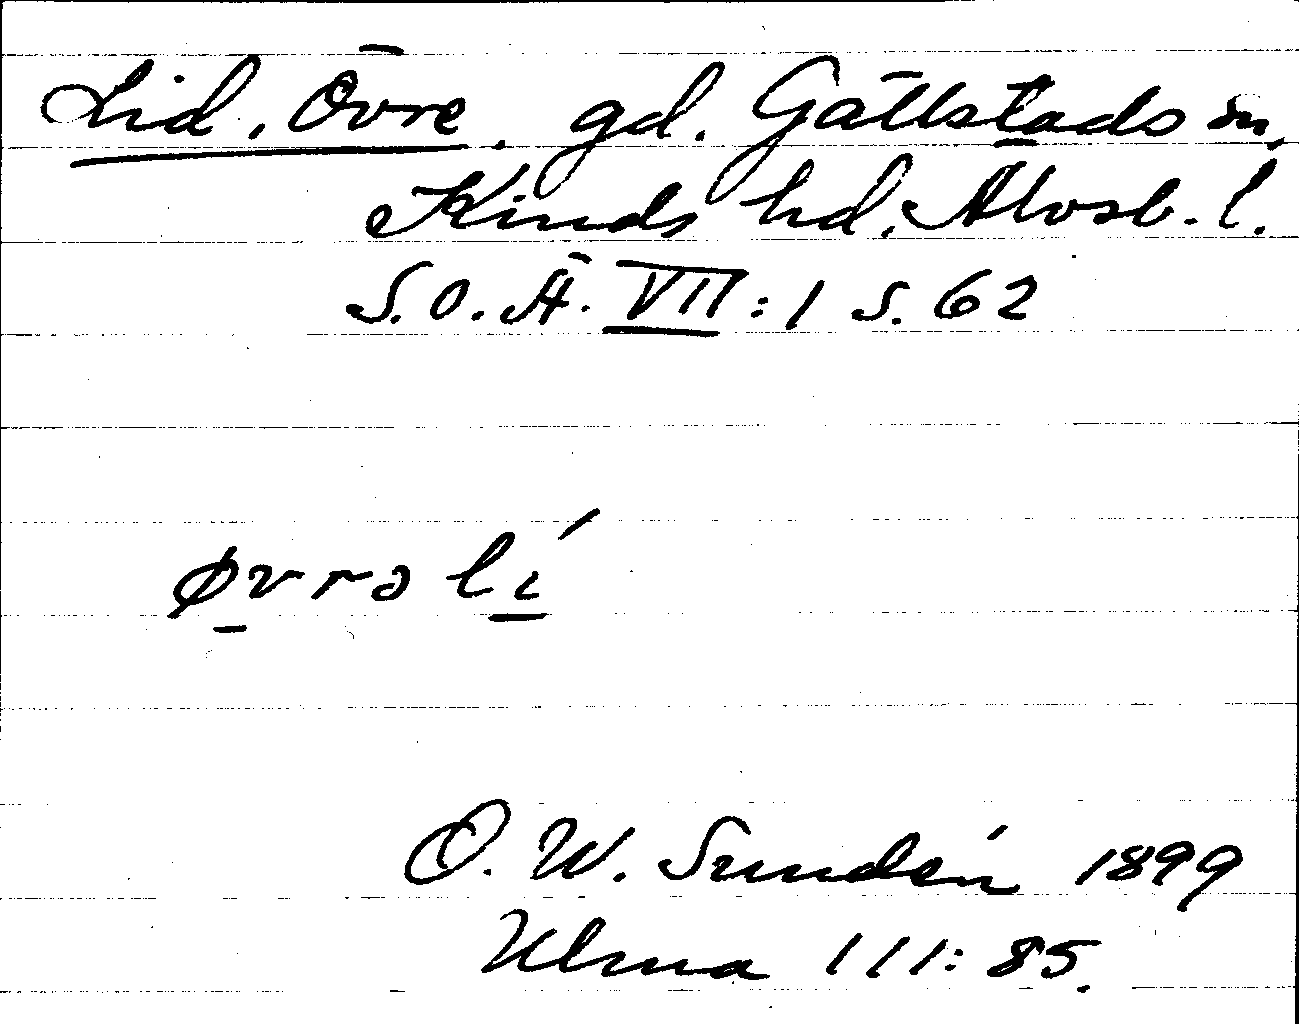 Lid, Övre, gd. Gällstads sn,
Kinds hd. Älvsb. l.
S.O.Ä. VII:1 s. 62
øvrə lí
O. W. Sundén 1899
Ulma 111:85.